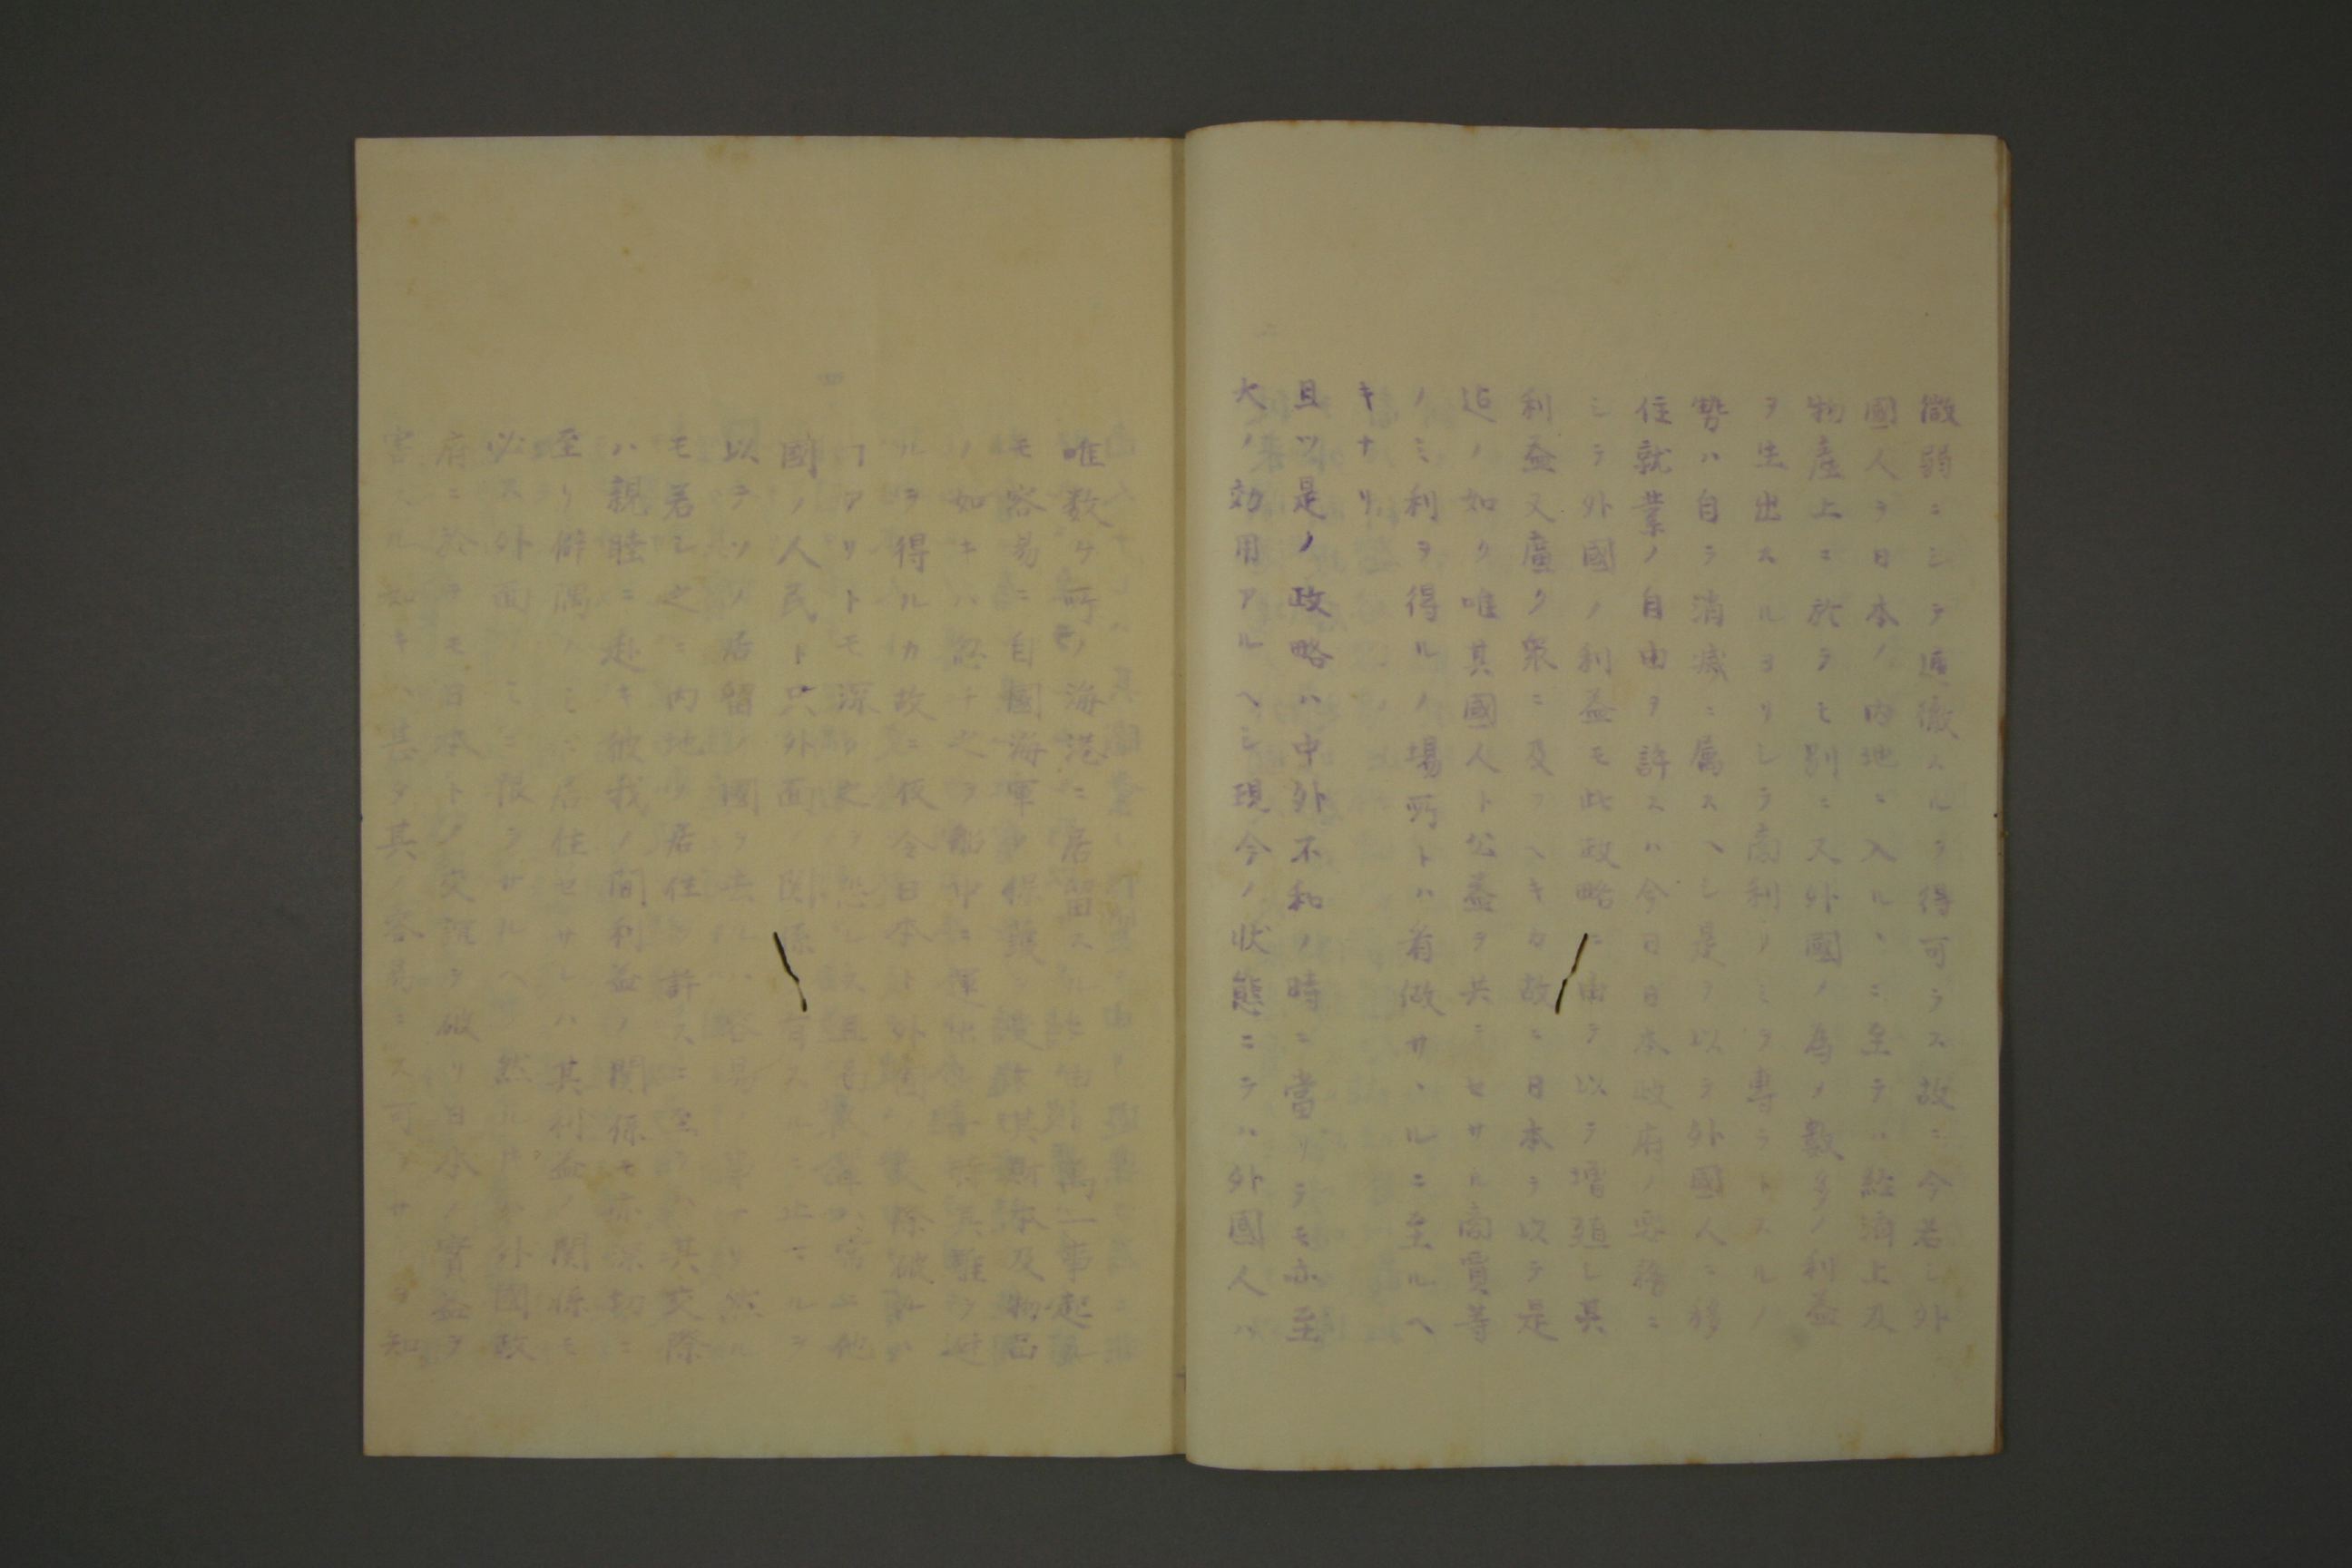 微弱ニシテ遁徼スルヲ得可ラス故ニ今若シ外
國人ヲ日本ノ内地ニ入ルヽニ至テハ經濟上及
物産上ニ於テモ別ニ又外國ノ為ノ數多ノ利益
ヲ生出スルヨリシテ商利ノミヲ專ラトスルノ
勢ハ自ラ消滅ニ属スヘシ是ヲ以テ外國人ニ移
住就業ノ自由ヲ許スハ今日日本政府ノ要務ニ
シテ外國ノ利益モ此政略ニ由テ以テ增殖シ其
利益又廣ク衆ニ及フヘキカ故ニ日本ヲ以テ是
迠ノ如ク唯其國人ト公益ヲ共ニセサル商賣等
ノミ利ヲ得ルノ場所トハ看做サヽルニ至ルヘ
キナリ
且以是ノ政略ハ中外不和ノ時ニ當リテモ亦至
大ノ効用アルヘシ現今ノ状態ニテハ外國人ハ
唯数ケ所ノ海港ニ居留スル 萬一事起ル
モ容易ニ自國海軍ノ保護ヲ 及物品
ノ如キハ忽チ之ヲ船中ニ 其難ヲ避
ルヲ得ルカ故ニ仮令日本ト外國 破ルヽ
アリトモ深ク之ヲ恐レ 他
國ノ人民ト只外面ノ関係ヲ有スルニ止マルヲ
以テソノ居留ノ國ヲ去ルハ容易ノ事ナリ然ル
モ若シ之ニ内地ノ居住ヲ許スニ至ラハ其交際
ハ親睦ニ赴キ彼我ノ間利益ノ関係モ亦深切ニ
至リ僻隅ノミニ居住セサレハ其利益ノ関係モ
必ス外面ノミニ限ラサルヘク然ル片ハ外國政
府ニ於テモ日本トノ交誼ヲ破リ日本ノ實益ヲ
害スル如キハ甚タ其ノ容易ニス可ラサルヲ知